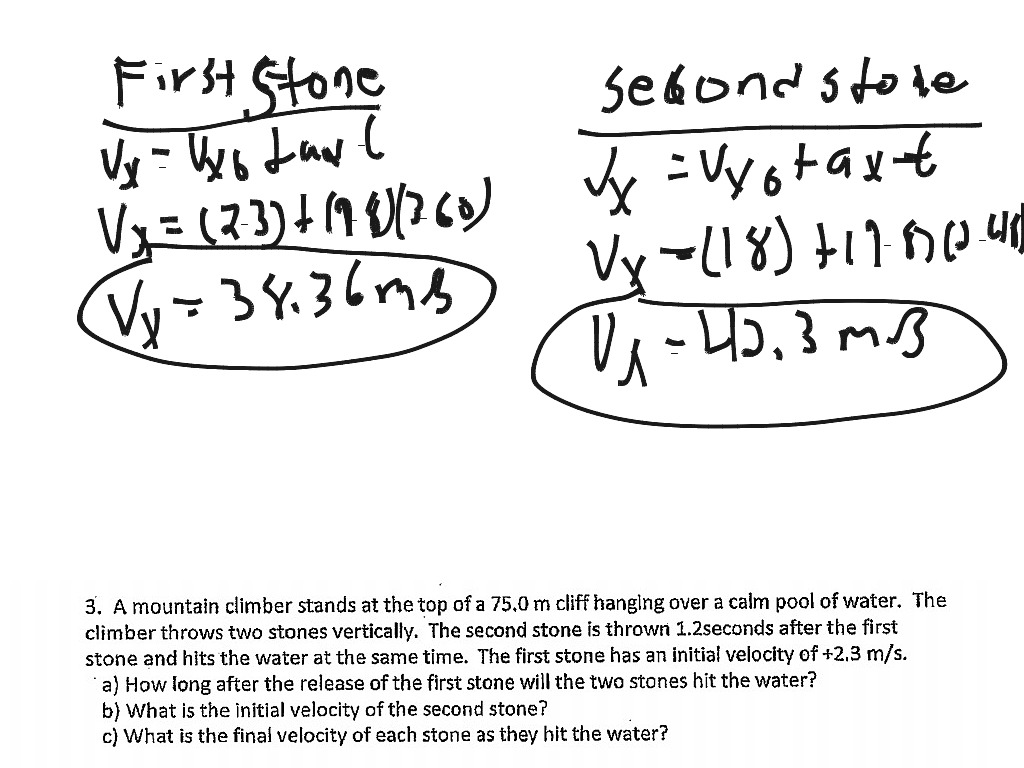 First Stone
Vx = Vx0 + ax t
Vx = (2.3) + (9.8)(3.60)
Vx = 38.36 m/s
Second stone
Vx = Vx0 + ax t
Vx = (18) + (9.8)(2.48)
Vx = 42.3 m/s
3. A mountain climber stands at the top of a 75.0 m cliff hanging over a calm pool of water. The
climber throws two stones vertically. The second stone is thrown 1.2seconds after the first
stone and hits the water at the same time. The first stone has an initial velocity of +2.3 m/s.
a) How long after the release of the first stone will the two stones hit the water?
b) What is the initial velocity of the second stone?
c) What is the final velocity of each stone as they hit the water?